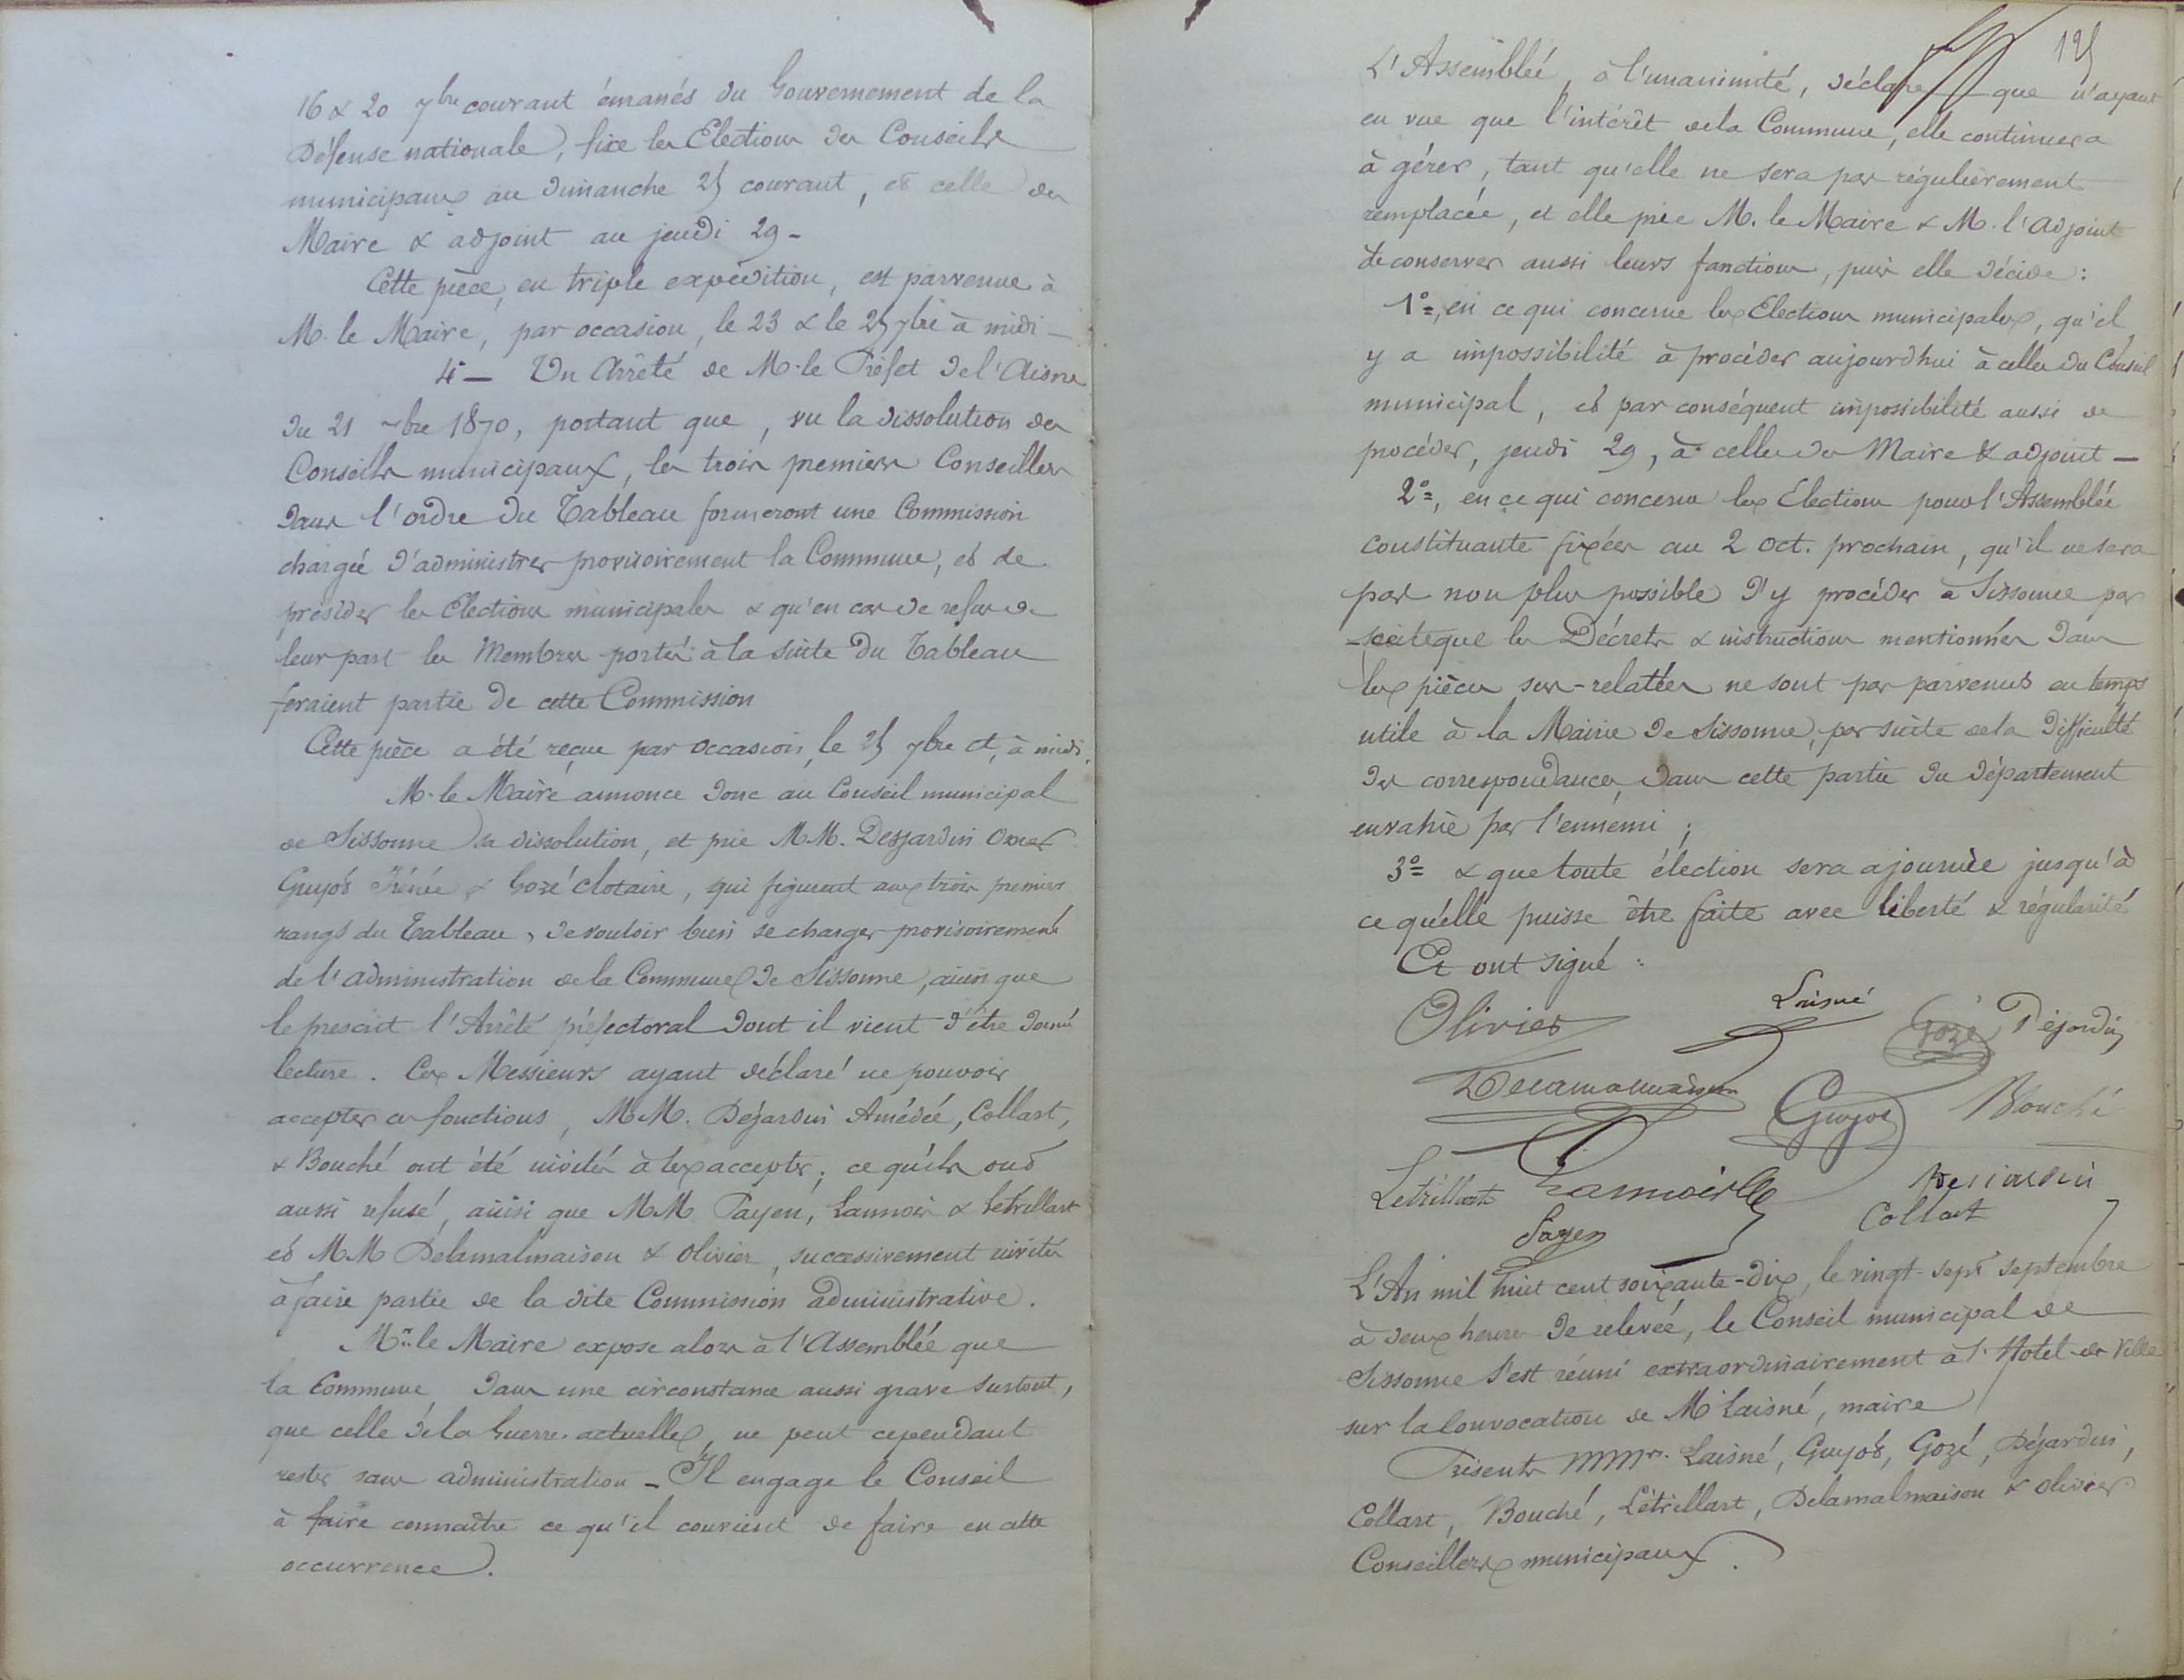 16 & 20 7bre courant émanés du Gouvernement de la
Défense nationale, fixe les Elections des Conseils
municipaux au dimanche 25 courant, et celle des
Maire & adjoint au jeudi 29 -
Cette pièce, en triple expédition, est parvenue à
M. le Maire, par occasion, le 23 & le 25 7bre à midi -
4° — Un Arrêté de M. le Préfet de l'Aisne
du 21 7bre 1870, portant que, vu la dissolution des
Conseils municipaux, les trois premiers Conseillers
dans l'ordre du Tableau formeront une Commission
chargée d'administrer provisoirement la Commune, et de
présider les Elections municipales & qu'en cas de refus de
leur part les Membres portés à la suite du Tableau
feraient partie de cette Commission
Cette pièce a été reçue par occasion, le 25 7bre ct, à midi.
M. le Maire annonce donc au Conseil municipal
de Sissonne sa dissolution, et prie MM. Desjardin Omer
Guyot Irénée & Gozé Clotaire, qui figurent aux trois premiers
rangs du Tableau, de vouloir bien se charger provisoirement
de l'administration de la Commune de Sissonne, ainsi que
le prescrit l'Arrêté préfectoral dont il vient d'être donné
lecture. Ces Messieurs ayant déclaré ne pouvoir
accepter ces fonctions, MM. Déjardin Amédée, Collart,
& Bouché ont été invités à les accepter; ce qu'ils ont
aussi refusé, ainsi que MM Payen, Lannois & Letrillart
et MM Delamalmaison & Olivier, successivement invités
à faire partie de la dite Commission administrative.
Mr. le Maire expose alors à l'Assemblée que
la Commune, dans une circonstance aussi grave surtout,
que celle de la Guerre actuelle, ne peut cependant
rester sans administration - Il engage le Conseil
à faire connaître ce qu'il convient de faire en cette
occurrence.
125
L'Assemblée, à l'unanimité, déclare que n'ayant
en vue que l'intérêt de la Commune, elle continuera
à gérer, tant qu'elle ne sera pas régulièrement
remplacée, et elle prie M. le Maire & M. l'adjoint
de conserver aussi leurs fonctions, puis elle décide :
1°=, en ce qui concerne les Elections municipales, qu'il
y a impossibilité à procéder aujourdhui à celles du Conseil
municipal, et par conséquent impossibilité aussi de
procéder, jeudi 29, à celles des Maire & adjoint —
2°=, en ce qui concerne les Elections pour l'Assemblée
constituante fixées au 2 oct. prochain, qu'il ne sera
pas non plus possible d'y procéder à Sissonne par
suite que les Décrets & instructions mentionnés dans
les pièces sus-relatées ne sont pas parvenus en temps
utile à la Mairie de Sissonne, par suite de la difficulté
des correspondances, dans cette partie du département
envahie par l'ennemi ;
3°= & que toute élection sera ajournée jusqu'à
ce qu'elle puisse être faite avec liberté & régularité
Et ont signé :
Olivier Laisné Gozé Déjardin
Delamalmaison Guyot Bouché
Letrillart Lannois Desjardin
Payen Collart
L'An mil huit cent soixante-dix, le vingt-sept septembre
à deux heures de relevée, le Conseil municipal de
Sissonne s'est réuni extraordinairement à l'Hotel-de Ville
sur la Convocation de M Laisné, maire
Présents MMrs. Laisné, Guyot, Gozé, Déjardin,
Collart, Bouché, Létrillart, Delamalmaison & Olivier
Conseillers municipaux.